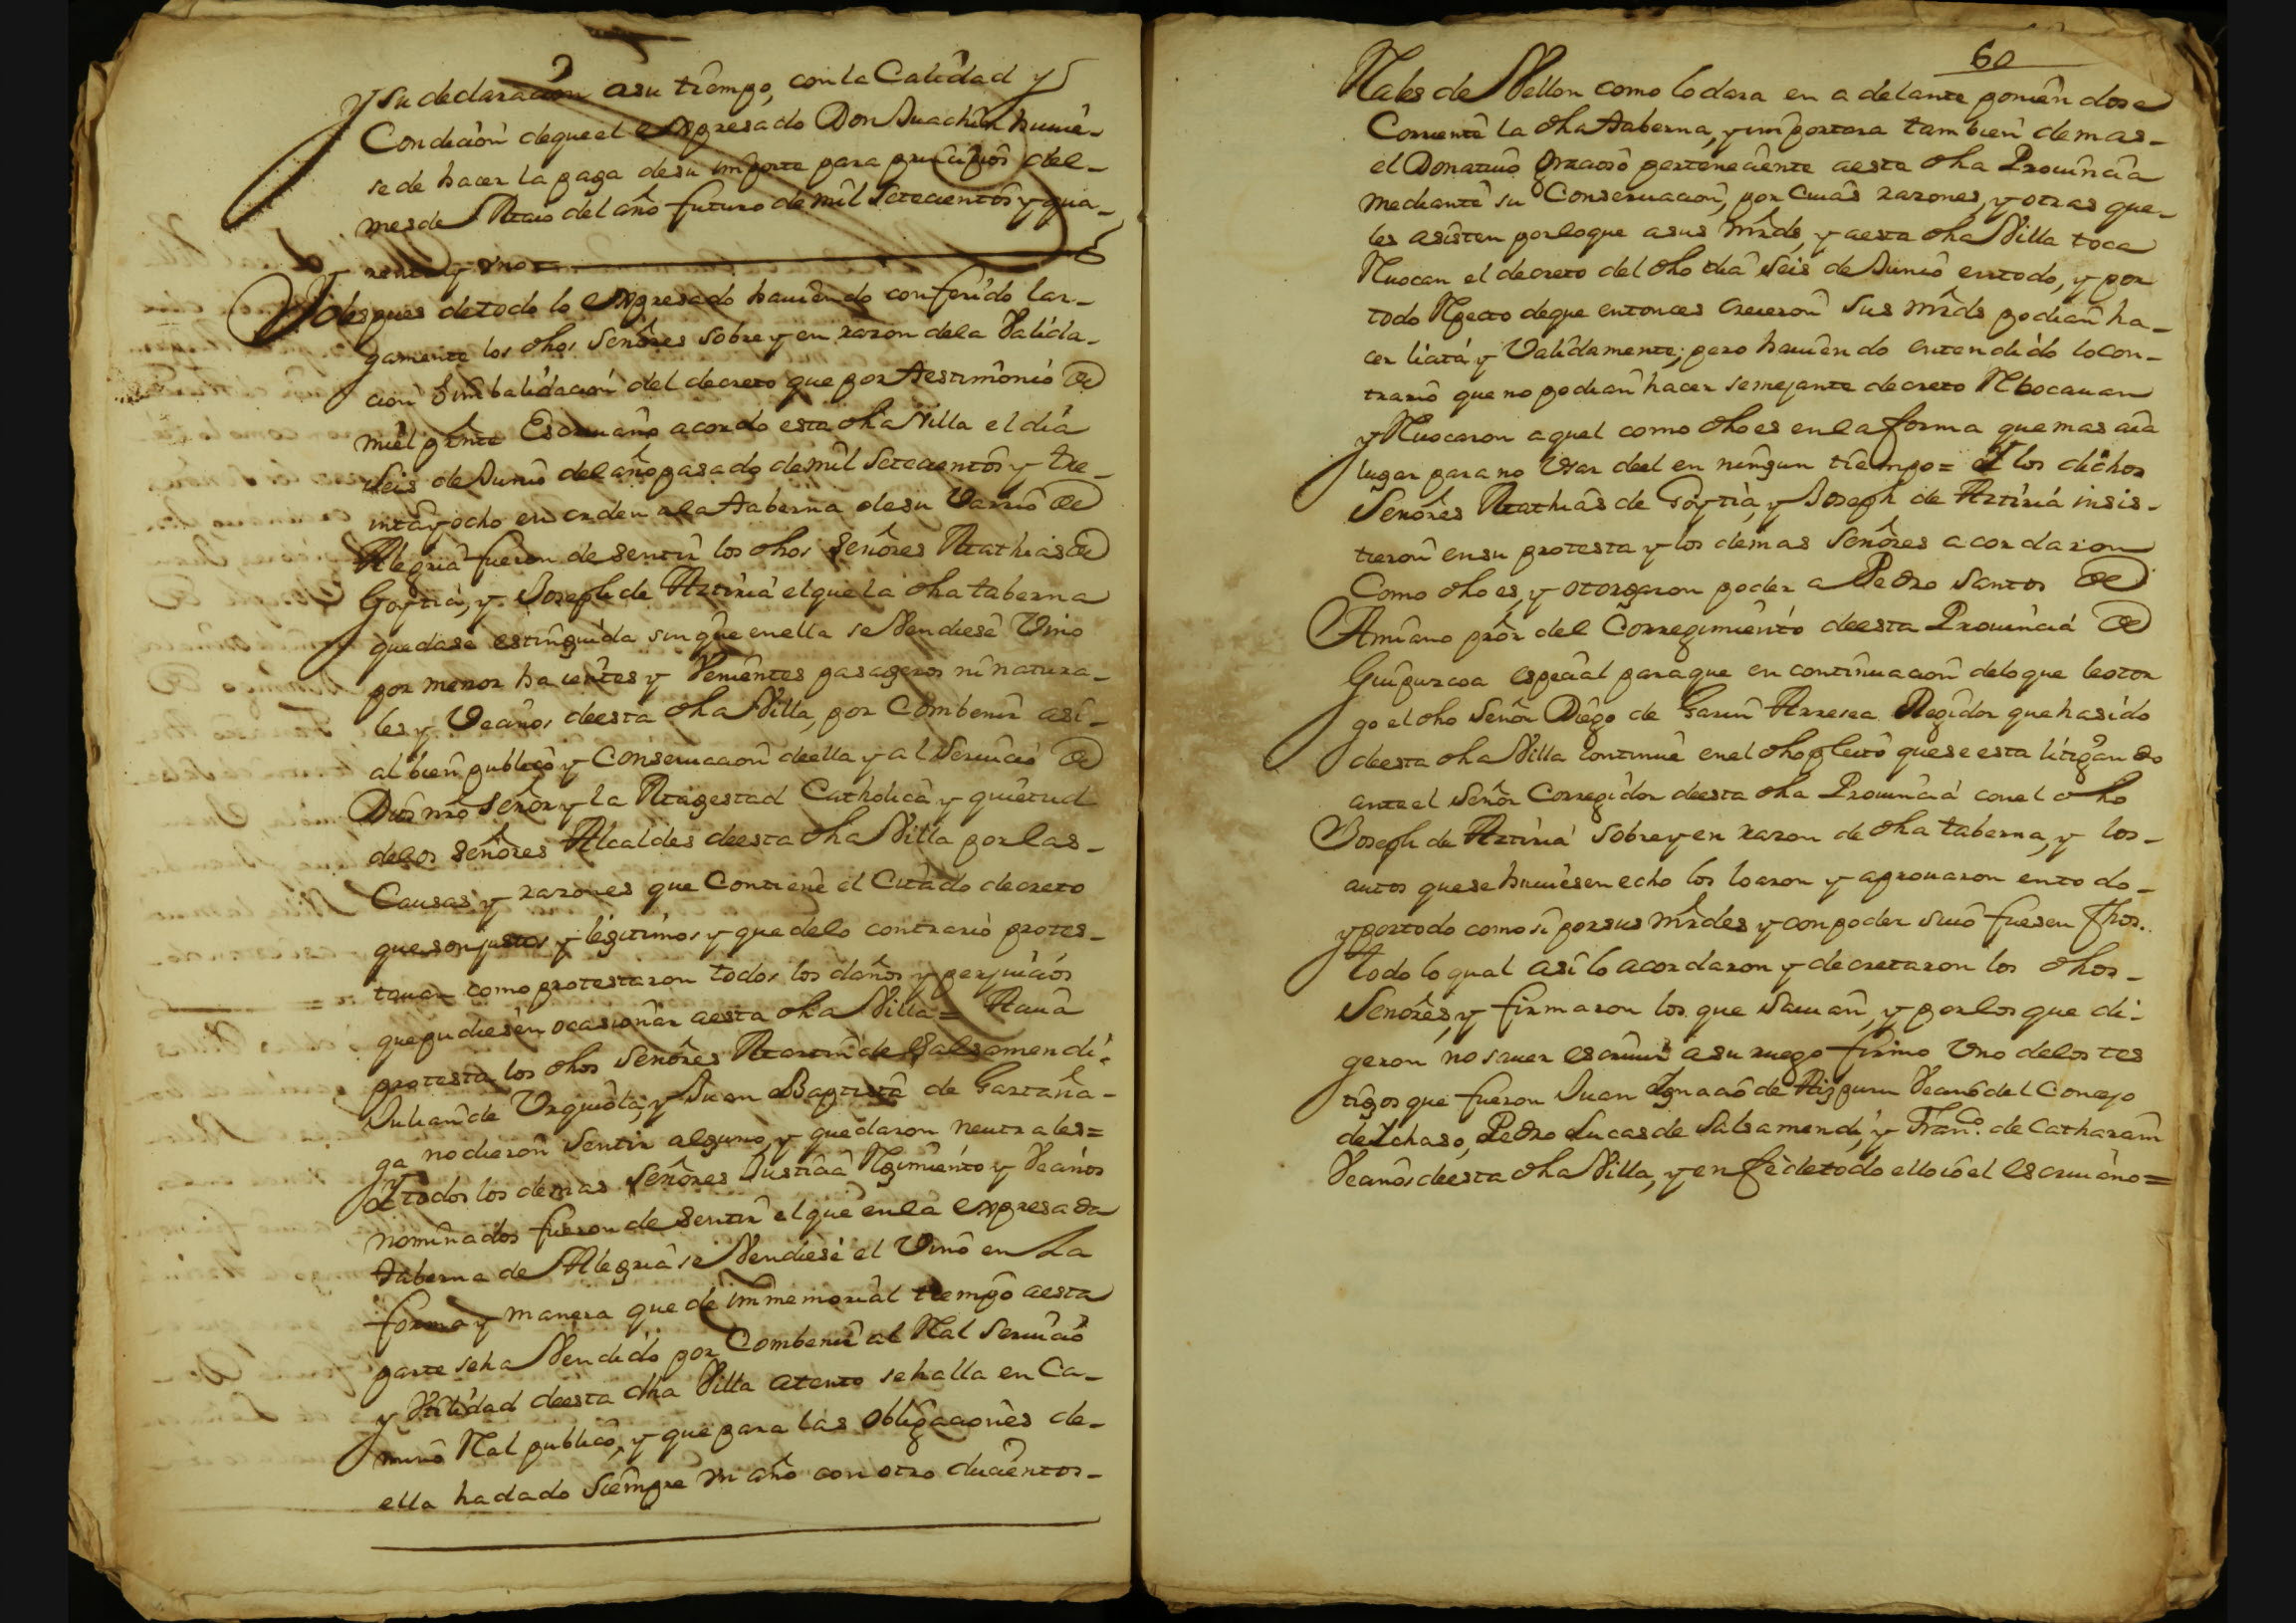 y su declaracion a su tiempo, con la Calidad y
Condicion de que el expresado Don Juachin huuie-
se de hacer la paga de su importe para principios del-
mes de Maio del año futuro de mil Setecientos y qua-
renta y vno=
Y despues de todo lo expresado hauiendo conferido lar-
gamente los dhos Señores sobre y en razon de la Valida-
cion ô imbalidacion del decreto que por testimonio de
mi el prnte Escriuano acordo esta dha Villa el dia
Seis de Junio del año pasado de mil Setecientos y tre-
inta y ocho en orden a la taberna de su Varrio de
Alegria fueron de Sentir los dhos Señores Mathias de
Goytia, y Joseph de Artiria el que la dha taberna
quedase estinguida sin que en ella se Vendiese Vino
por menor ha ientes y Venientes pasageros ni natura-
les y Vecinos de esta dha Villa, por Combenir asi-
al bien publico y Conseruacion de ella y al Seruicio de
Dios nro Señor y la Magestad Catholica y quietud
de los Señores Alcaldes de esta dha Villa por las-
Causas y razones que Contiene el Citado decreto
que son justos y legitimos y que de lo contrario protes-
tauan como protestaron todos los daños y perjuicios
que pudiesen ocasionar a esta dha Villa= A cuia
protesta los dhos Señores Martin de Salsamendi,
Julian de Vrquiola, y Juan Baptista de Gartaña-
ga no dieron Sentir alguno, y quedaron neutrales=
Y todos los demas Señores Justicia Rgimiento y Vecinos
nominados fueron de Sentir el que en la expresada
taberna de Alegria se Vendiese el Vino en la
forma y manera que de immemorial tiempo a esta
parte se ha Vendido por Combenir al Ral Seruicio
y Vtilidad de esta dha Villa atento se halla en Ca-
mino Ral publico, y que para las Obligaciones de-
ella ha dado Siempre vn año con otro ducientos-
60
Rales de Vellon como lo dara en adelante poniendose
Corriente la dha taberna, y importara tambien demas-
el Donatiuo Gracioso perteneciente a esta dha Prouincia
mediante su Conseruacion, por Cuias razones, y otras que-
les asisten por lo que a sus mrds, y a esta dha Villa toca
Reuocan el decreto del dho dia Seis de Junio en todo, y por
todo Rpecto de que entonces creieron Sus mrds podian ha-
cer licita y Validamente; pero hauiendo entendido lo con-
trario que no podian hacer semejante decreto Rebocauan
y Reuocaron aquel como dho es en la forma que mas aia
lugar para no Vsar de el en ningun tiempo= Y los dichos
Señores Mathias de Goytia, y Joseph de Artiria insis-
tieron en su protesta y los demas Señores acordaron
Como dho es, y otorgaron poder a Pedro Santos de
Amiano pror del Corregimiento de esta Prouincia de
Guipuzcoa especial para que en continuacion de lo que le otor
go el dho Señor Diego de Garin Arresea Regidor que ha sido
de esta dha Villa Continue en el dho pleito que se esta litigando
ante el Señor Corregidor de esta dha Prouincia con el dho
Joseph de Artiria sobre y en razon de dha taberna, y los-
autos que se huuiesen echo los loaron y aprouaron en todo-
y por todo como si por sus mrdes y con poder suio fuesen fhos.
todo lo qual asi lo acordaron y decretaron los dhos-
Señores, y firmaron los que Sauian, y por los que di-
geron no sauer escriuir a su ruego firmo Vno de los tes
tigos que fueron Juan Ignacio de Aizpuru Vecino del Concejo
de Ichaso, Pedro Lucas de Salsamendi, y Franco. de Catharain
Vecinos de esta dha Villa, y en fe de todo ello io el escriuano=